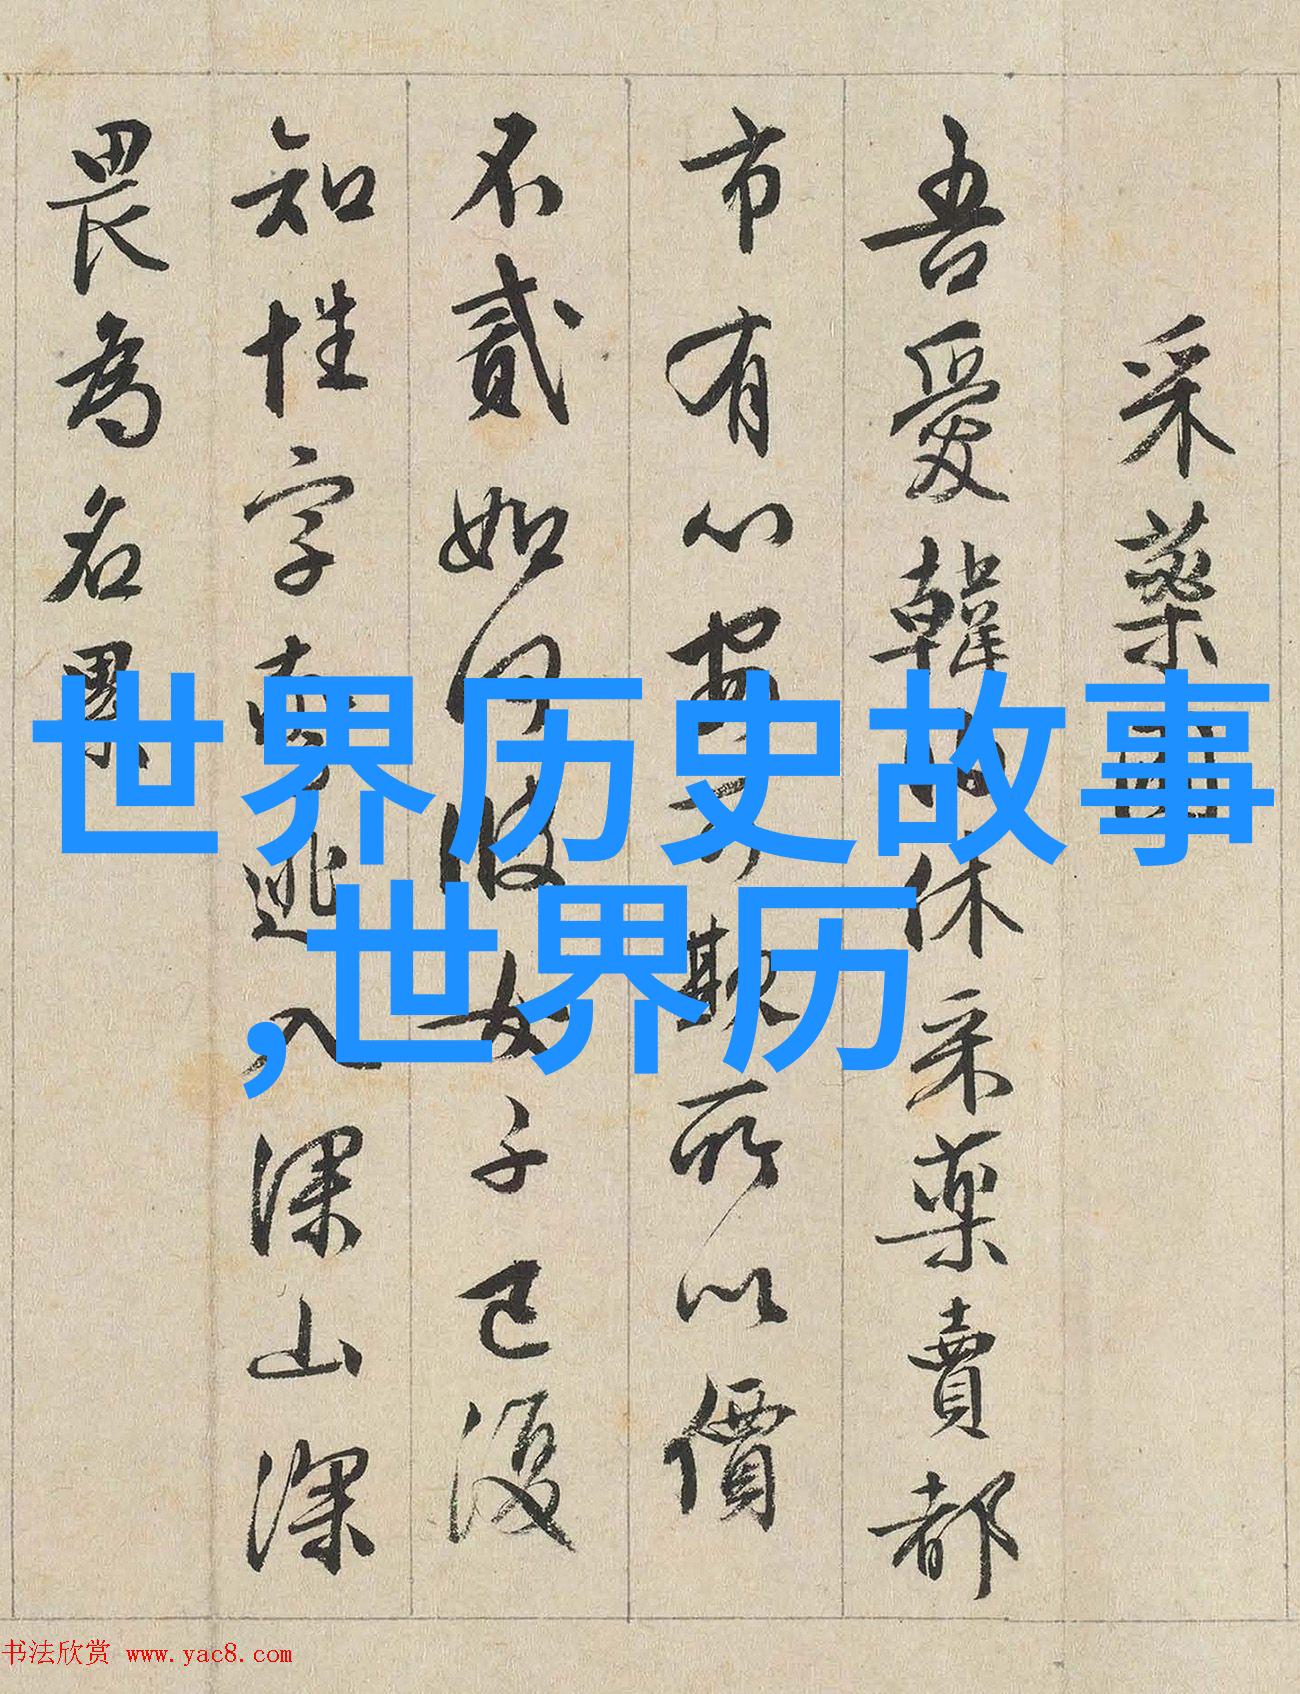 采藥
吾愛韓休采藥賣都
市有心欺所以價
不貳如何彼女子已復
知性字逃入深山深
畏為名累
世界历史故事
,世界历
书法欣赏 www.yac8.com